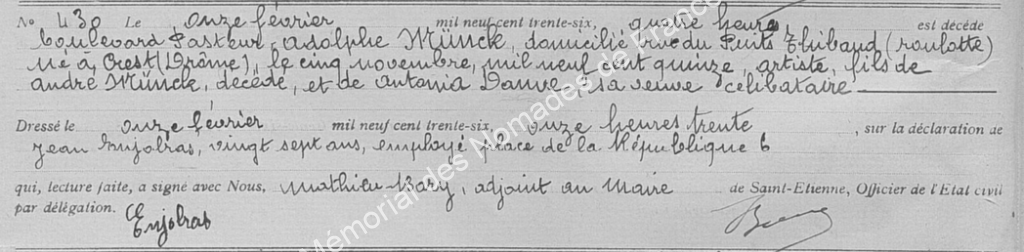 No 430 Le onze février mil neuf cent trente-six, quatre heures est décédé
boulevard Pasteur, Adolphe Münck, domicilié rue du Puits Thibaud (roulotte)
né à Crest (Drôme), le cinq novembre, mil neuf cent quinze, artiste, fils de
André Münck, décédé, et de Antonia sa veuve célibataire
Dressé le onze février mil neuf cent trente-six, onze heures trente, sur la déclaration de
Jean Enjolras, vingt sept ans, employé place de la République 6
qui, lecture faite, a signé avec Nous, Mathieu Bary, adjoint au Maire de Saint-Etienne, Officier de l'Etat civil
par délégation.
Enjolras
Mémorial des Nomades de France